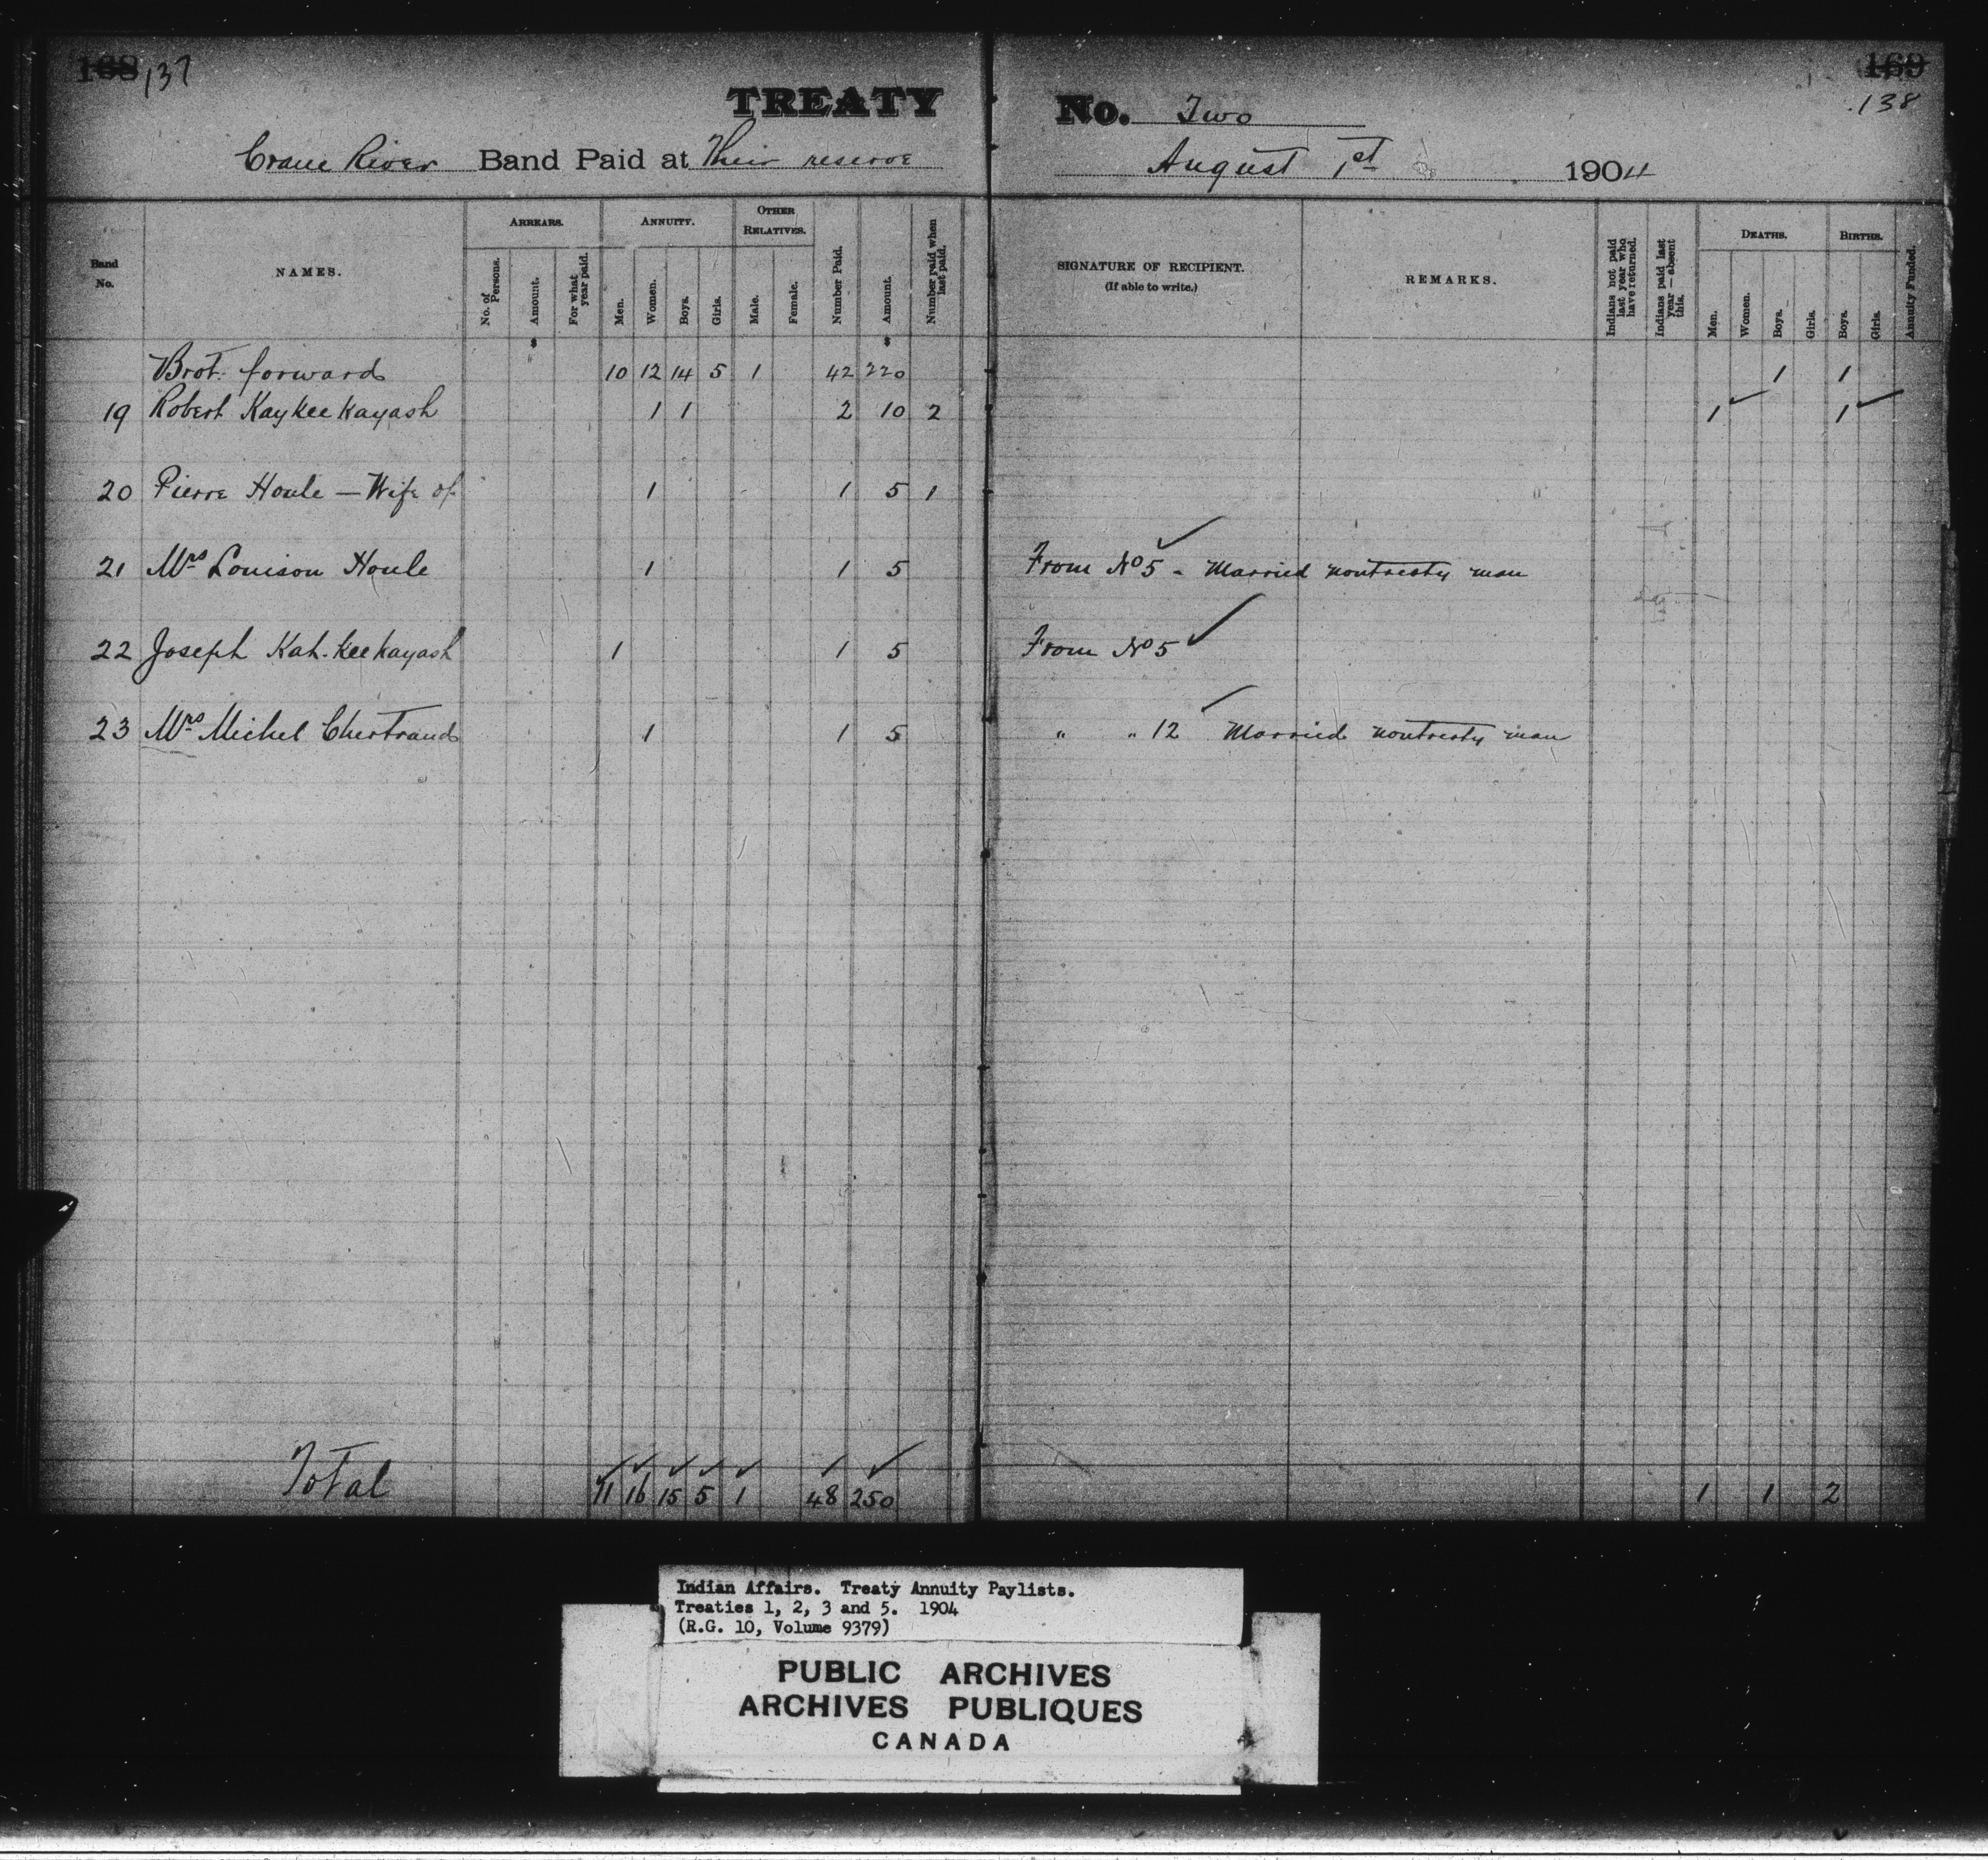 168 137
TREATY No. Two
169
138
Crane River Band Paid at Their reserve August 1st 1904
Band No.
NAMES.
ARREARS.
No. of Persons.
Amount.
For what year paid.
ANNUITY.
Men.
Women.
Boys.
Girls.
OTHER RELATIVES.
Male.
Female.
Number Paid.
Amount.
Number paid when last paid.
SIGNATURE OF RECIPIENT.
(If able to write.)
REMARKS.
Indians not paid last year who have returned.
Indians paid last year—absent this.
DEATHS.
Men.
Women.
Boys.
Girls.
BIRTHS.
Boys.
Girls.
Annuity Funded.
$ $
Brot. forward 10 12 14 5 1 42 220 1 1
19 Robert Kaykeekayash 1 1 2 10 2 1 1
20 Pierre Houle — Wife of 1 1 5 1
21 Mrs Louison Houle 1 1 5 From No 5 - Married nontreaty man
22 Joseph Kah-keekayash 1 1 5 From No 5
23 Mrs Michel Chertrand 1 1 5 " " 12 Married nontreaty man
Total 11 16 15 5 1 48 250 1 1 2
Indian Affairs. Treaty Annuity Paylists.
Treaties 1, 2, 3 and 5. 1904
(R.G. 10, Volume 9379)
PUBLIC ARCHIVES
ARCHIVES PUBLIQUES
CANADA